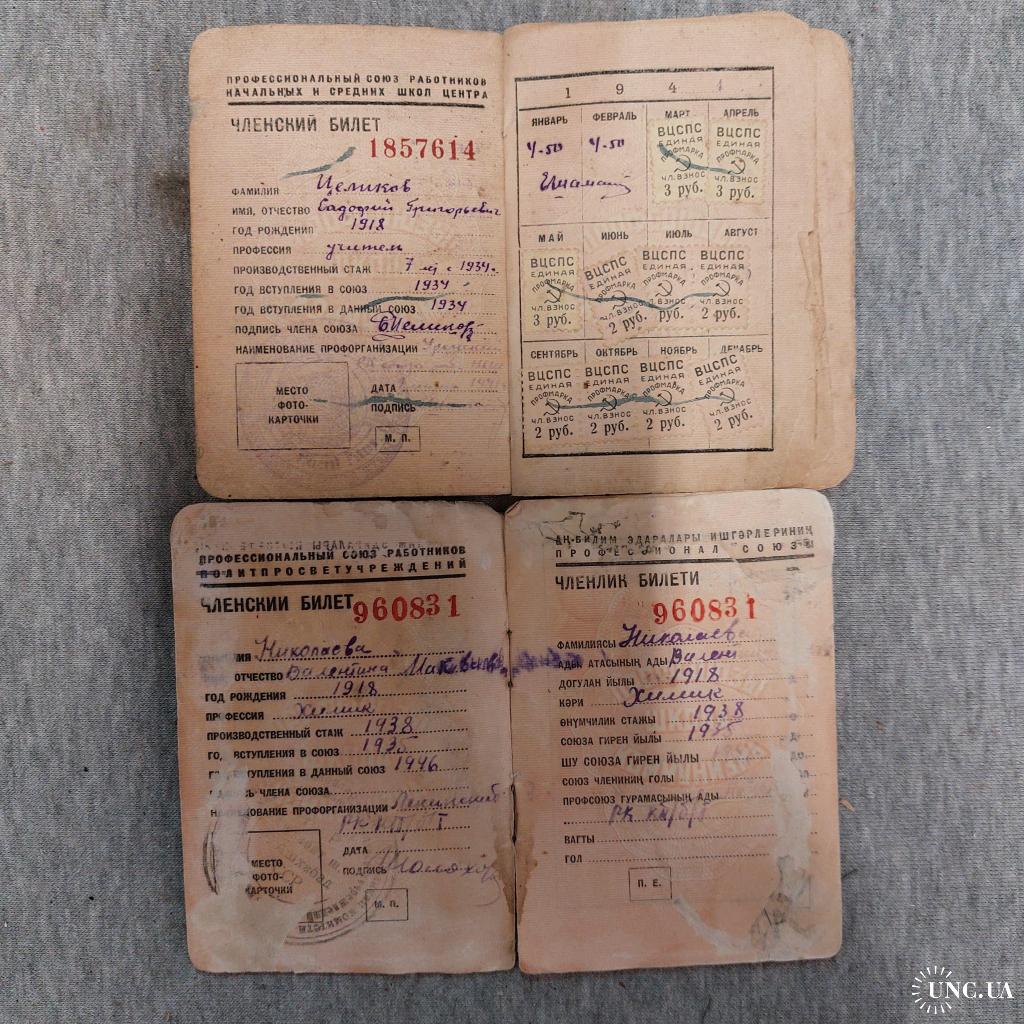 ПРОФЕССИОНАЛЬНЫЙ СОЮЗ РАБОТНИКОВ
НАЧАЛЬНЫХ И СРЕДНИХ ШКОЛ ЦЕНТРА
ЧЛЕНСКИЙ БИЛЕТ
1857614
ФАМИЛИЯ Целиков
ИМЯ, ОТЧЕСТВО Садофий Григорьевич
ГОД РОЖДЕНИЯ 1918
ПРОФЕССИЯ учитель
ПРОИЗВОДСТВЕННЫЙ СТАЖ 7 лет с 1934
ГОД ВСТУПЛЕНИЯ В СОЮЗ 1934
ГОД ВСТУПЛЕНИЯ В ДАННЫЙ СОЮЗ 1934
ПОДПИСЬ ЧЛЕНА СОЮЗА Целиков
НАИМЕНОВАНИЕ ПРОФОРГАНИЗАЦИИ
МЕСТО
ФОТО-
КАРТОЧКИ
ДАТА
ПОДПИСЬ
М. П.
1 9 4 1
ЯНВАРЬ ФЕВРАЛЬ МАРТ АПРЕЛЬ
4-50 4-50
ВЦСПС ЕДИНАЯ ПРОФМАРКА ЧЛ. ВЗНОС 3 руб.
ВЦСПС ЕДИНАЯ ПРОФМАРКА ЧЛ. ВЗНОС 3 руб.
МАЙ ИЮНЬ ИЮЛЬ АВГУСТ
ВЦСПС ЕДИНАЯ ПРОФМАРКА ЧЛ. ВЗНОС 3 руб.
ВЦСПС ЕДИНАЯ ПРОФМАРКА ЧЛ. ВЗНОС 2 руб.
ВЦСПС ЕДИНАЯ ПРОФМАРКА ЧЛ. ВЗНОС 2 руб.
ВЦСПС ЕДИНАЯ ПРОФМАРКА ЧЛ. ВЗНОС 2 руб.
СЕНТЯБРЬ ОКТЯБРЬ НОЯБРЬ ДЕКАБРЬ
ВЦСПС ЕДИНАЯ ПРОФМАРКА ЧЛ. ВЗНОС 2 руб.
ВЦСПС ЕДИНАЯ ПРОФМАРКА ЧЛ. ВЗНОС 2 руб.
ВЦСПС ЕДИНАЯ ПРОФМАРКА ЧЛ. ВЗНОС 2 руб.
ВЦСПС ЕДИНАЯ ПРОФМАРКА ЧЛ. ВЗНОС 2 руб.
ПРОФЕССИОНАЛЬНЫЙ СОЮЗ РАБОТНИКОВ
ПОЛИТПРОСВЕТУЧРЕЖДЕНИЙ
ЧЛЕНСКИЙ БИЛЕТ 960831
Николаева
ОТЧЕСТВО Валентина
ГОД РОЖДЕНИЯ 1918
ПРОФЕССИЯ Химик
ПРОИЗВОДСТВЕННЫЙ СТАЖ 1938
ГОД ВСТУПЛЕНИЯ В СОЮЗ 1935
ГОД ВСТУПЛЕНИЯ В ДАННЫЙ СОЮЗ 1946
ПОДПИСЬ ЧЛЕНА СОЮЗА
НАИМЕНОВАНИЕ ПРОФОРГАНИЗАЦИИ
МЕСТО
ФОТО-
КАРТОЧКИ
ДАТА
ПОДПИСЬ
М. П.
АҢ-БИЛИМ ЭДАРАЛАРЫ ИШГӘРЛЕРИНИҢ
ПРОФЕССИОНАЛ СОЮЗЫ
ЧЛЕНЛИК БИЛЕТИ
960831
ФАМИЛИЯСЫ Николаева
АДЫ АТАСЫНЫҢ АДЫ Вален
ДОГУЛАН ЙЫЛЫ 1918
КӘРИ Химик
ӨНҮМЧИЛИК СТАЖЫ 1938
СОЮЗА ГИРЕН ЙЫЛЫ 1935
ШУ СОЮЗА ГИРЕН ЙЫЛЫ
СОЮЗ ЧЛЕНИНИҢ ГОЛЫ
ПРОФСОЮЗ ГУРАМАСЫНЫҢ АДЫ
ВАГТЫ
ГОЛ
П. Е.
UNC.UA